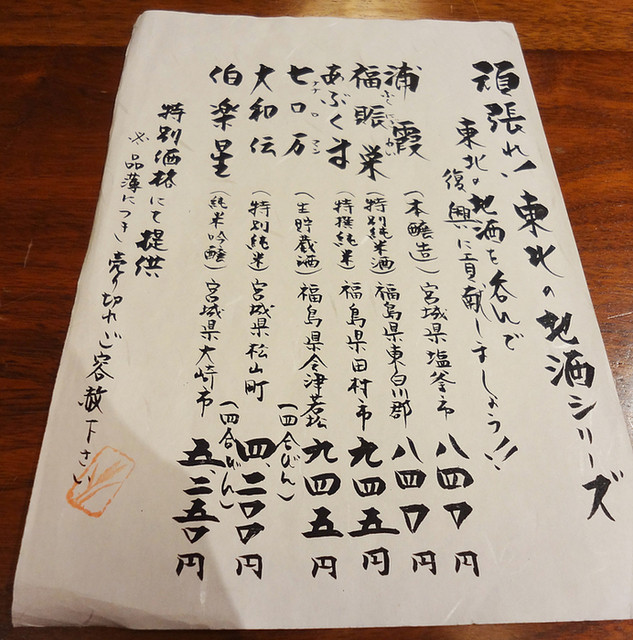 頑張れ!東北の地酒シリーズ
東北の地酒を呑んで
復興に貢献しましょう!!
浦霞(本醸造)宮城県塩釜市 八四〇円
福賑栄(特別純米酒)福島県東白川郡 八四〇円
あぶくま(特撰純米)福島県田村市 九四五円
七ロ万(生貯蔵酒)福島県会津若松 九四五円
ナナ ロ マン
大和伝(特別純米)宮城県松山町(四合びん)四、二〇〇円
伯楽星(純米吟醸)宮城県大崎市(四合びん)五二五〇円
特別価格にて提供
※品薄につき売り切れご容赦下さい